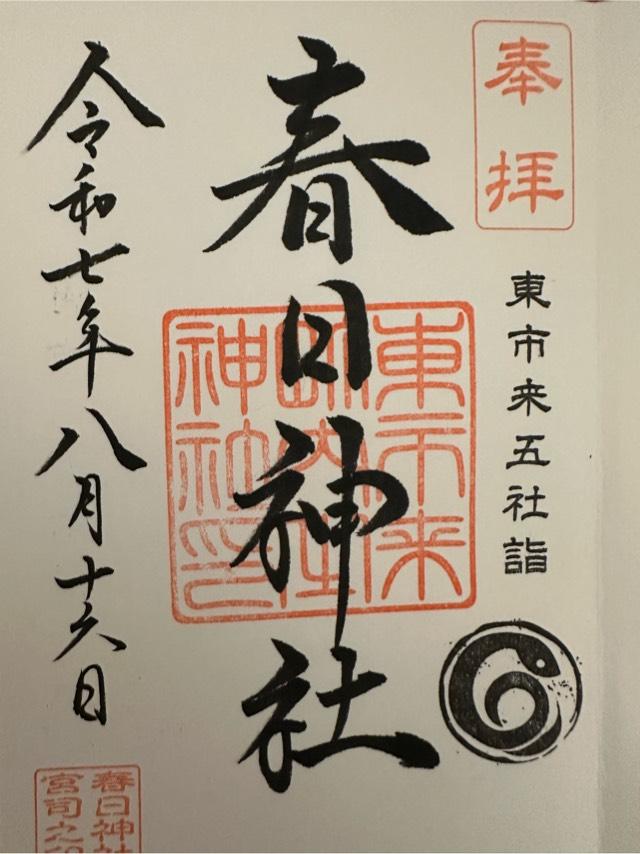 奉拝
東市来五社詣
春日神社
東市来
神社印
令和七年八月十六日
春日神社
宮司之印